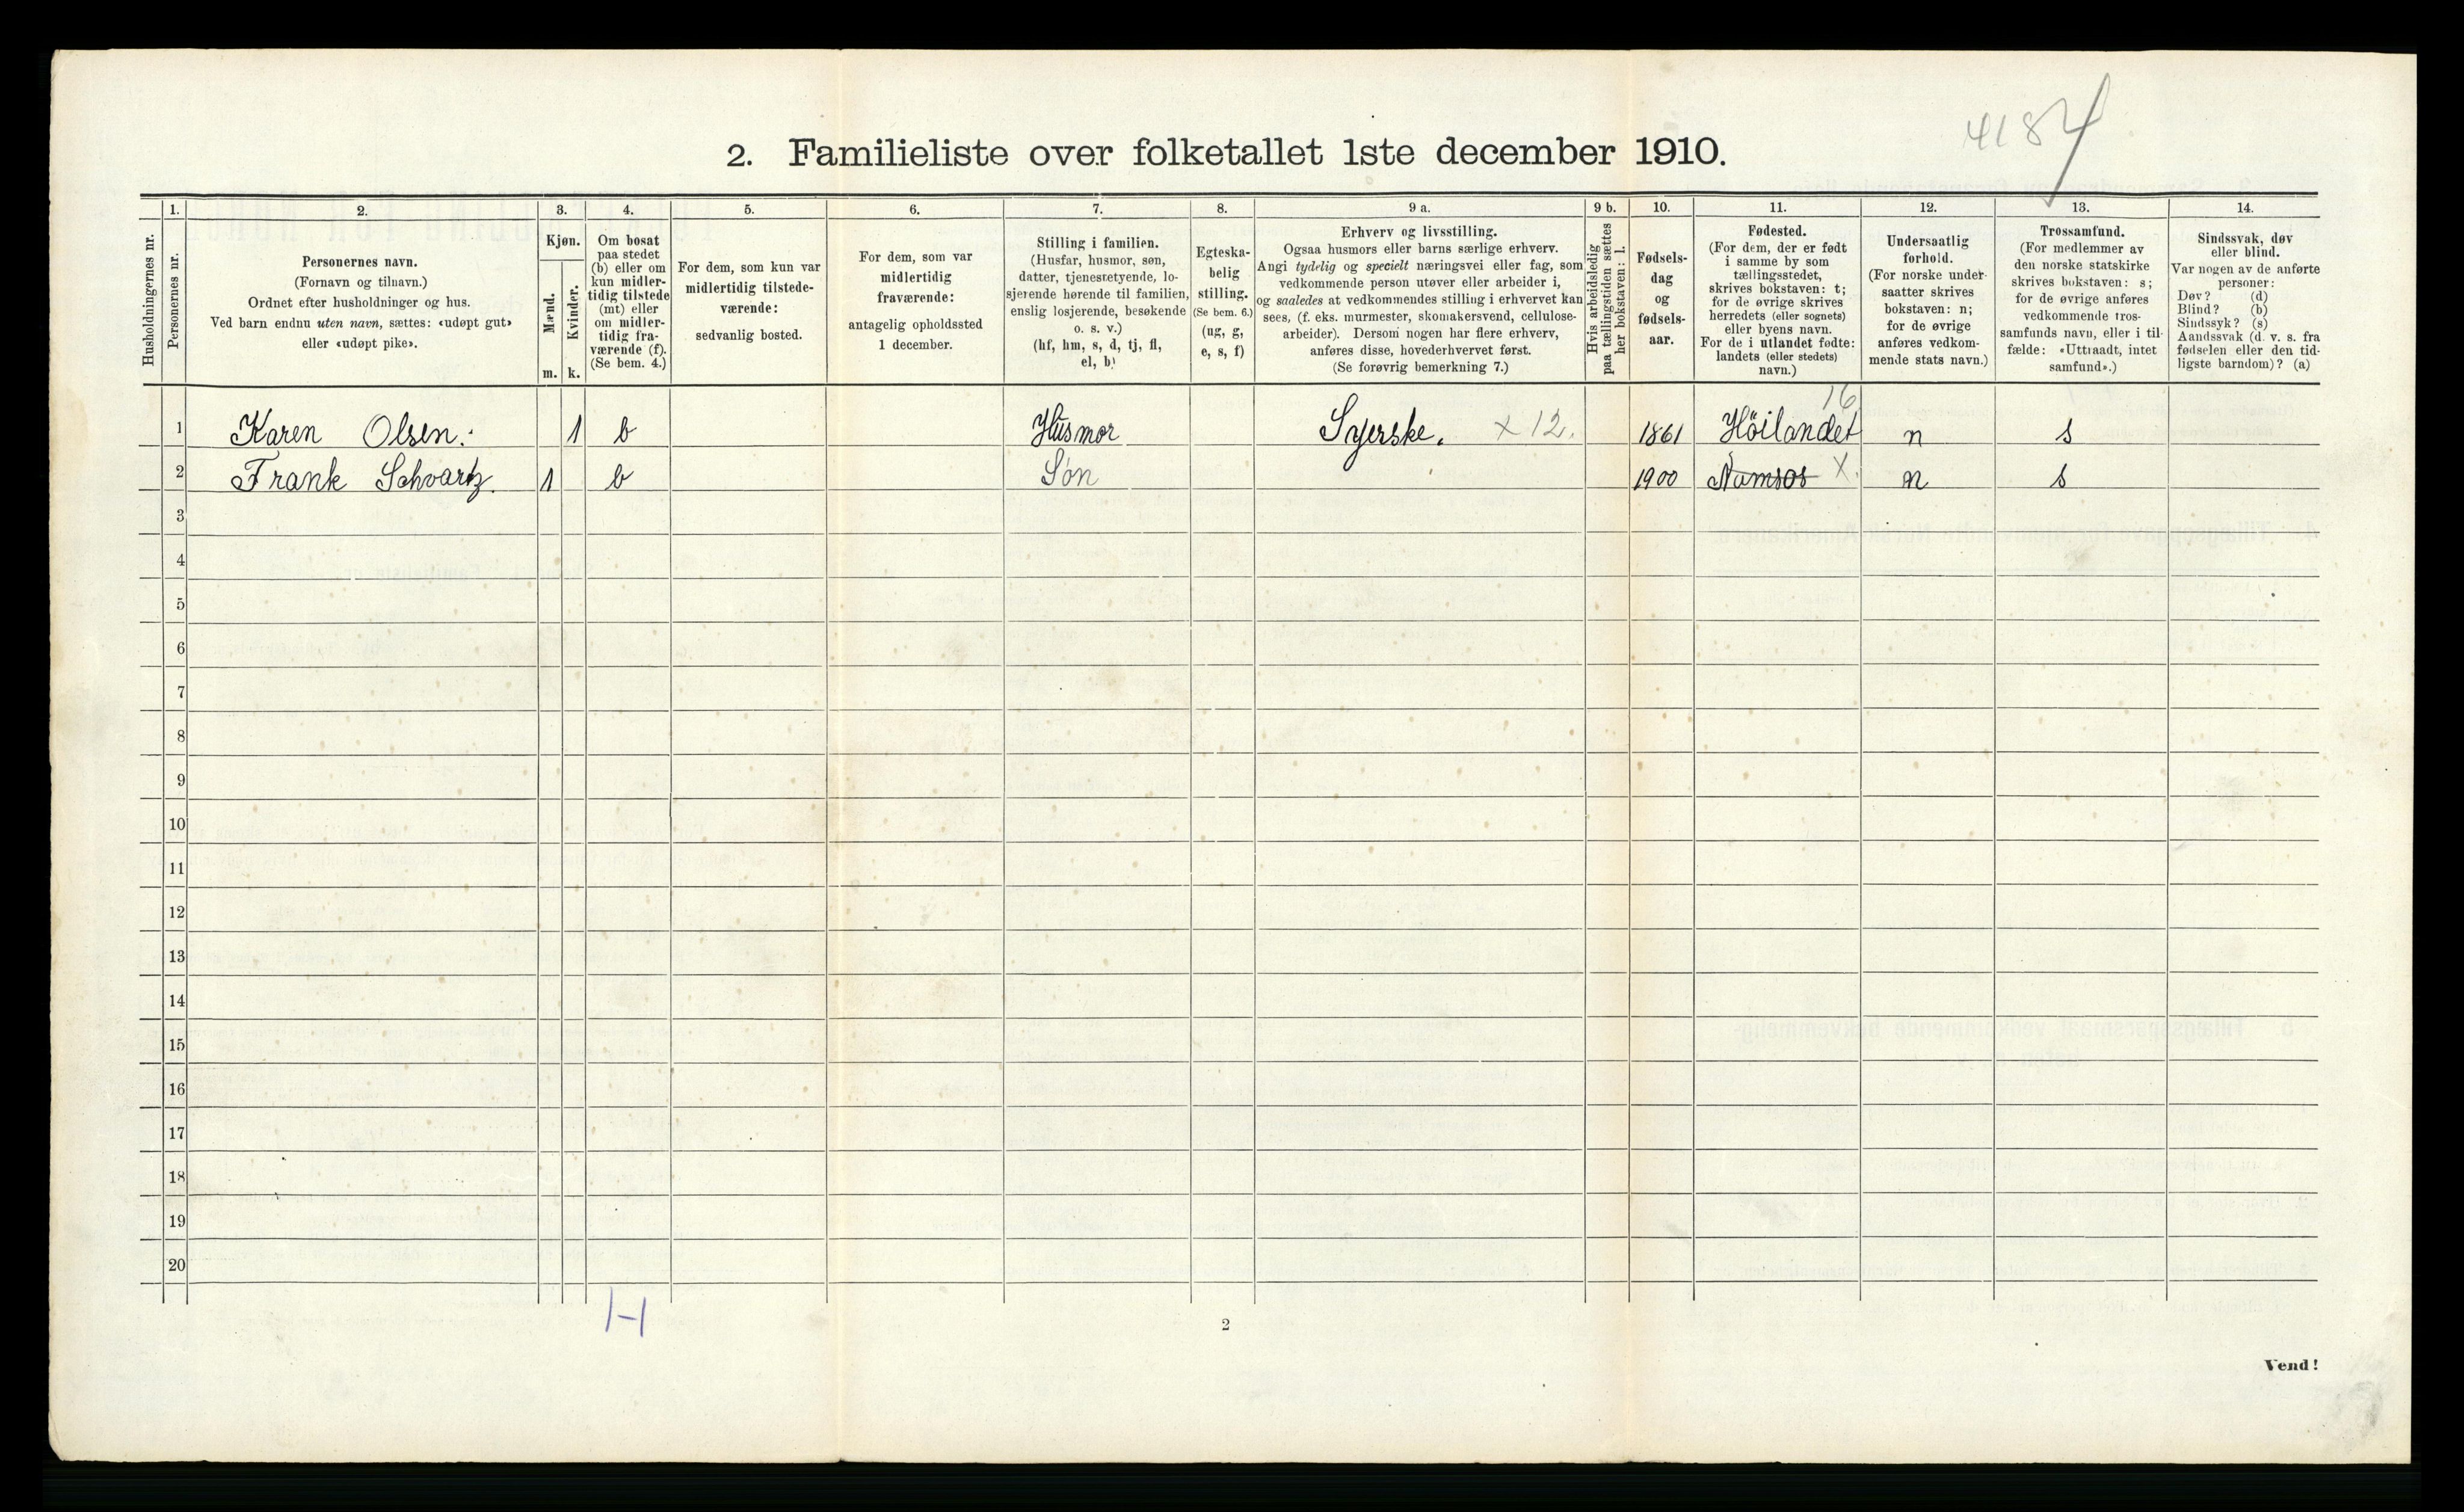 4184
2. Familieliste over folketallet 1ste december 1910.
Husholdningernes nr.
1.
Personernes nr.
2.
Personernes navn.
(Fornavn og tilnavn.)
Ordnet efter husholdninger og hus.
Ved barn endnu uten navn, sættes: «udøpt gut»
eller «udøpt pike».
3.
Kjøn.
Mænd.
Kvinder.
m. k.
4.
Om bosat
paa stedet
(b) eller om
kun midler-
tidig tilstede
(mt) eller
om midler-
tidig fra-
værende (f).
(Se bem. 4.)
5.
For dem, som kun var
midlertidig tilstede-
værende:
sedvanlig bosted.
6.
For dem, som var
midlertidig
fraværende:
antagelig opholdssted
1 december.
7.
Stilling i familien.
(Husfar, husmor, søn,
datter, tjenestetyende, lo-
sjerende hørende til familien,
enslig losjerende, besøkende
o. s. v.)
(hf, hm, s, d, tj, fl,
el, b)
8.
Egteska-
belig
stilling.
(Se bem. 6.)
(ug, g,
e, s, f)
9 a.
Erhverv og livsstilling.
Ogsaa husmors eller barns særlige erhverv.
Angi tydelig og specielt næringsvei eller fag, som
vedkommende person utøver eller arbeider i,
og saaledes at vedkommendes stilling i erhvervet kan
sees, (f. eks. murmester, skomakersvend, cellulose-
arbeider). Dersom nogen har flere erhverv,
anføres disse, hovederhvervet først.
(Se forøvrig bemerkning 7.)
9 b.
Hvis arbeidsledig
paa tællingstiden sættes
her bokstaven: l.
10.
Fødsels-
dag
og
fødsels-
aar.
11.
Fødested.
(For dem, der er født
i samme by som
tællingsstedet,
skrives bokstaven: t;
for de øvrige skrives
herredets (eller sognets)
eller byens navn.
For de i utlandet fødte:
landets (eller stedets)
navn.)
12.
Undersaatlig
forhold.
(For norske under-
saatter skrives
bokstaven: n;
for de øvrige
anføres vedkom-
mende stats navn.)
13.
Trossamfund.
(For medlemmer av
den norske statskirke
skrives bokstaven: s;
for de øvrige anføres
vedkommende tros-
samfunds navn, eller i til-
fælde: «Uttraadt, intet
samfund».)
14.
Sindssvak, døv
eller blind.
Var nogen av de anførte
personer:
Døv? (d)
Blind? (b)
Sindssyk? (s)
Aandssvak (d. v. s. fra
fødselen eller den tid-
ligste barndom)? (a)
16
1 Karen Olsen. 1 b Husmor Syerske. x 12. 1861 Höilandet n s
2 Frank Schvartz. 1 b Søn 1900 Namsos X. n s
3
4
5
6
7
8
9
10
11
12
13
14
15
16
17
18
19
20
1-1
2
Vend!